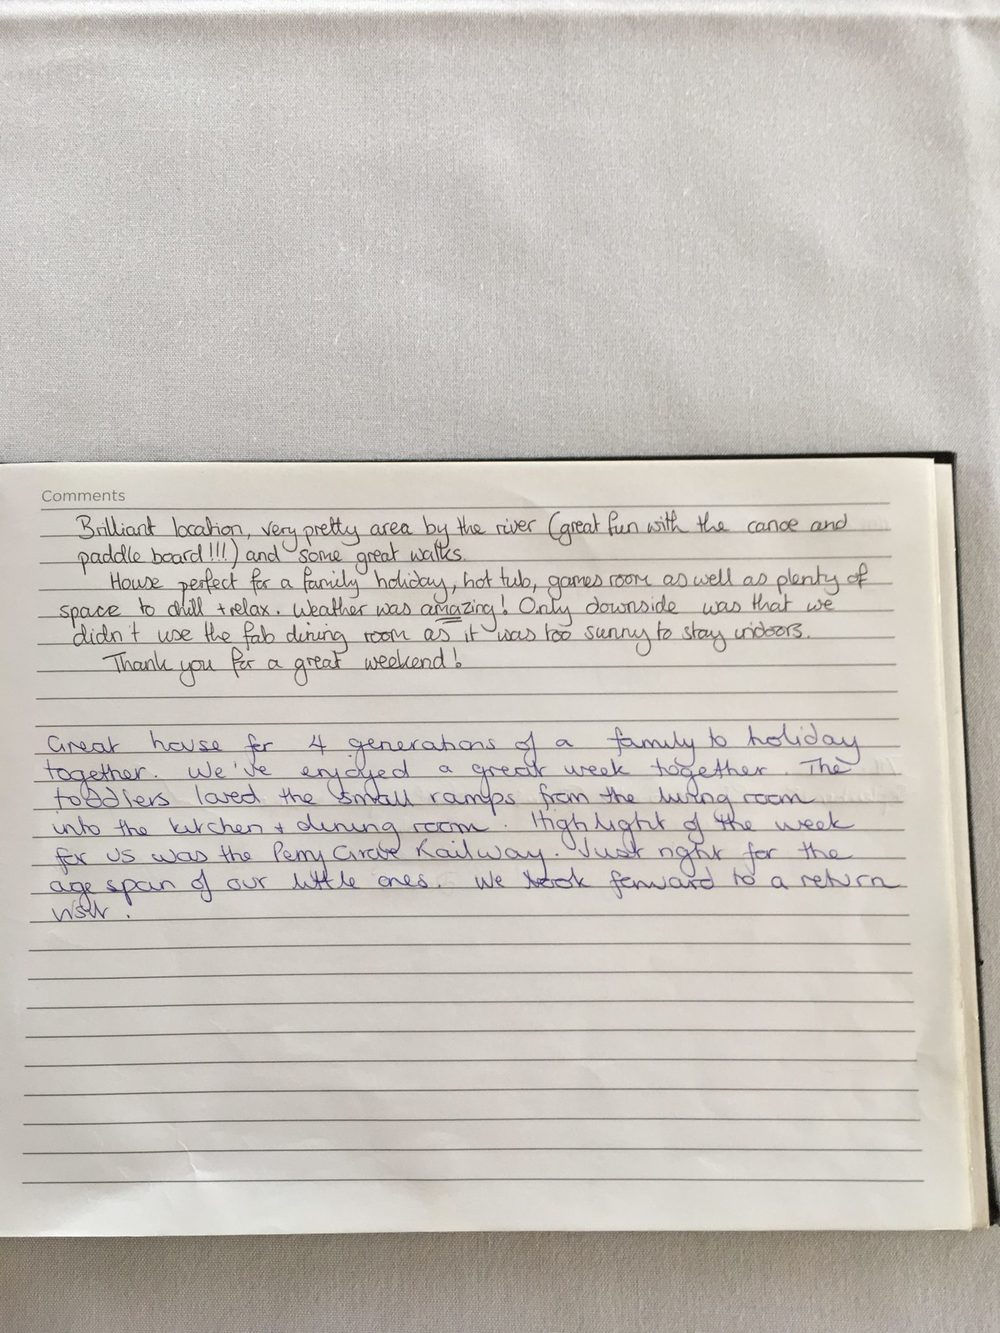 Comments
Brilliant location, very pretty area by the river (great fun with the canoe and
paddle board!!!) and some great walks.
House perfect for a family holiday, hot tub, games room as well as plenty of
space to chill + relax. Weather was amazing! Only downside was that we
didn't use the fab dining room as it was too sunny to stay indoors.
Thank you for a great weekend!
Great house for 4 generations of a family to holiday
together. We've enjoyed a great week together. The
toddlers loved the small ramps from the living room
into the kitchen + dining room. Highlight of the week
for us was the Perry Railway. Just right for the
age span of our little ones. We look forward to a return
visit.